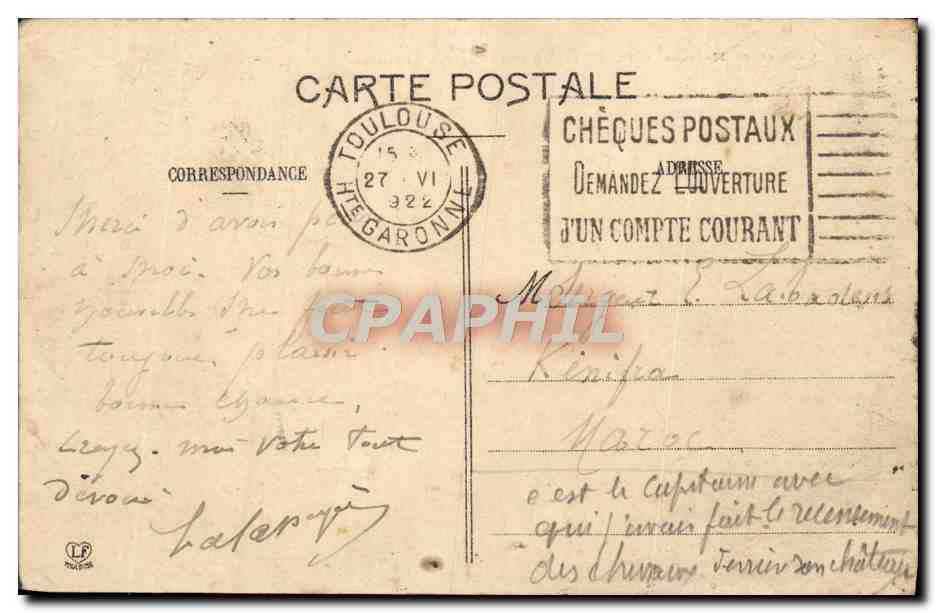 CARTE POSTALE
CORRESPONDANCE
TOULOUSE
15
27 VI
922
HTE GARONNE
CHÈQUES POSTAUX
ADRESSE
DEMANDEZ L'OUVERTURE
D'UN COMPTE COURANT
Merci d'avoir
à moi. Vos bonnes
nouvelles me font
toujours plaisir.
bonne chance,
croyez-moi votre tout
dévoué
M
Kénifra
Maroc
c'est le capitaine avec
qui j'avais fait le recensement
des chevaux dernier son château
CPAPHIL
LF